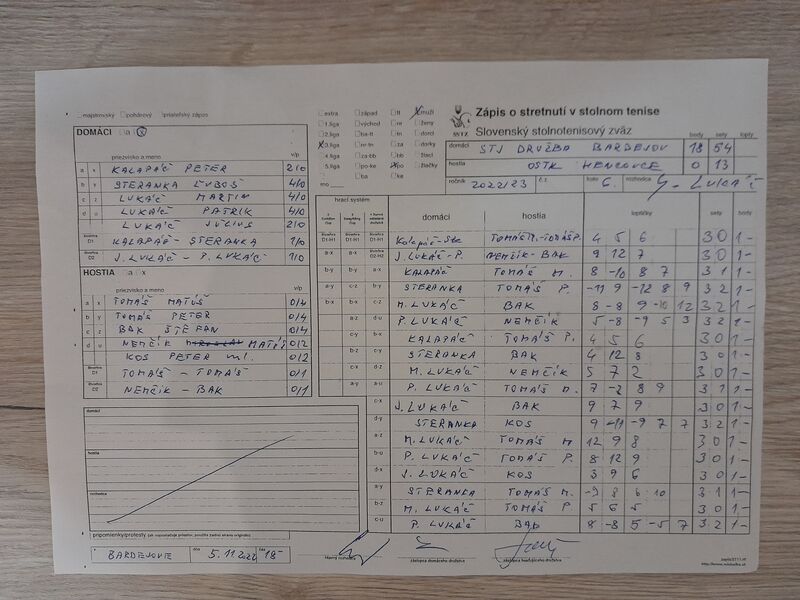 majstrovský pohárový priateľský zápas
DOMÁCI a x
priezvisko a meno v/p
a x KALAPÁČ PETER 2/0
b y STERANKA ĽUBOŠ 4/0
c z LUKÁČ MARTIN 4/0
d u LUKÁČ PATRIK 4/0
LUKÁČ JÚLIUS 2/0
štvorhra D1 KALAPÁČ - STERANKA 1/0
štvorhra D2 J. LUKÁČ - P. LUKÁČ 1/0
HOSTIA a x
priezvisko a meno v/p
a x TOMÁŠ MATÚŠ 0/4
b y TOMÁŠ PETER 0/4
c z BAK ŠTEFAN 0/4
d u NEMČÍK MATÚŠ 0/2
KOS PETER ml. 0/2
štvorhra D1 TOMÁŠ - TOMÁŠ 0/1
NEMČÍK - BAK 0/1
domáci
hostia
rozhodca
pripomienky/protesty
v BARDEJOVE dňa 5.11.2022 čas 18-
extra západ tt muži
1.liga východ nr ženy
2.liga ba-tt tn dorci
3.liga nr-tn za dorky
4.liga za-bb bb žiaci
5.liga po-ke po žiačky
ba ke
mo
SSTZ
Zápis o stretnutí v stolnom tenise
Slovenský stolnotenisový zväz
body sety lopty
domáci STJ DRUŽBA BARDEJOV 18 54
hostia OSTK HENCOVCE 0 13
ročník 2022/23 č.z. kolo 6. rozhodca J. LUKÁČ
hrací systém domáci hostia loptičky sety body
D1-H1 D1-H1 D1-H1 Kalapáč-Ste TOMÁŠ M.-TOMÁŠ P. 4 5 6 3 0 1-
a-x a-x D2-H2 J. LUKÁČ-P. NEMČÍK-BAK 9 12 7 3 0 1-
b-y b-y a-x KALAPÁČ TOMÁŠ M. 8 -10 8 7 3 1 1-
c-z c-z b-y STERANKA TOMÁŠ P. -11 9 -12 8 9 3 2 1-
b-x b-x c-z M. LUKÁČ BAK 8 -8 9 -10 12 3 2 1-
a-z d-u P. LUKÁČ NEMČÍK 5 -8 -9 5 3 3 2 1-
c-y b-x KALAPÁČ TOMÁŠ P. 4 5 6 3 0 1-
b-z c-y STERANKA BAK 4 12 8 3 0 1-
c-x d-z M. LUKÁČ NEMČÍK 5 7 2 3 0 1-
a-y a-u P. LUKÁČ TOMÁŠ M. 7 -2 8 9 3 1 1-
c-x J. LUKÁČ BAK 9 7 9 3 0 1-
d-y STERANKA KOS 9 -11 -9 7 7 3 2 1-
a-z M. LUKÁČ TOMÁŠ M 12 9 8 3 0 1-
b-u P. LUKÁČ TOMÁŠ P. 8 12 9 3 0 1-
d-x J. LUKÁČ KOS 3 9 6 3 0 1-
a-y STERANKA TOMÁŠ M. -9 8 6 10 3 1 1-
b-z M. LUKÁČ TOMÁŠ P 5 6 5 3 0 1-
c-u P. LUKÁČ BAK 8 -8 5 -5 7 3 2 1-
hlavný rozhodca zástupca domáceho družstva zástupca hosťujúceho družstva